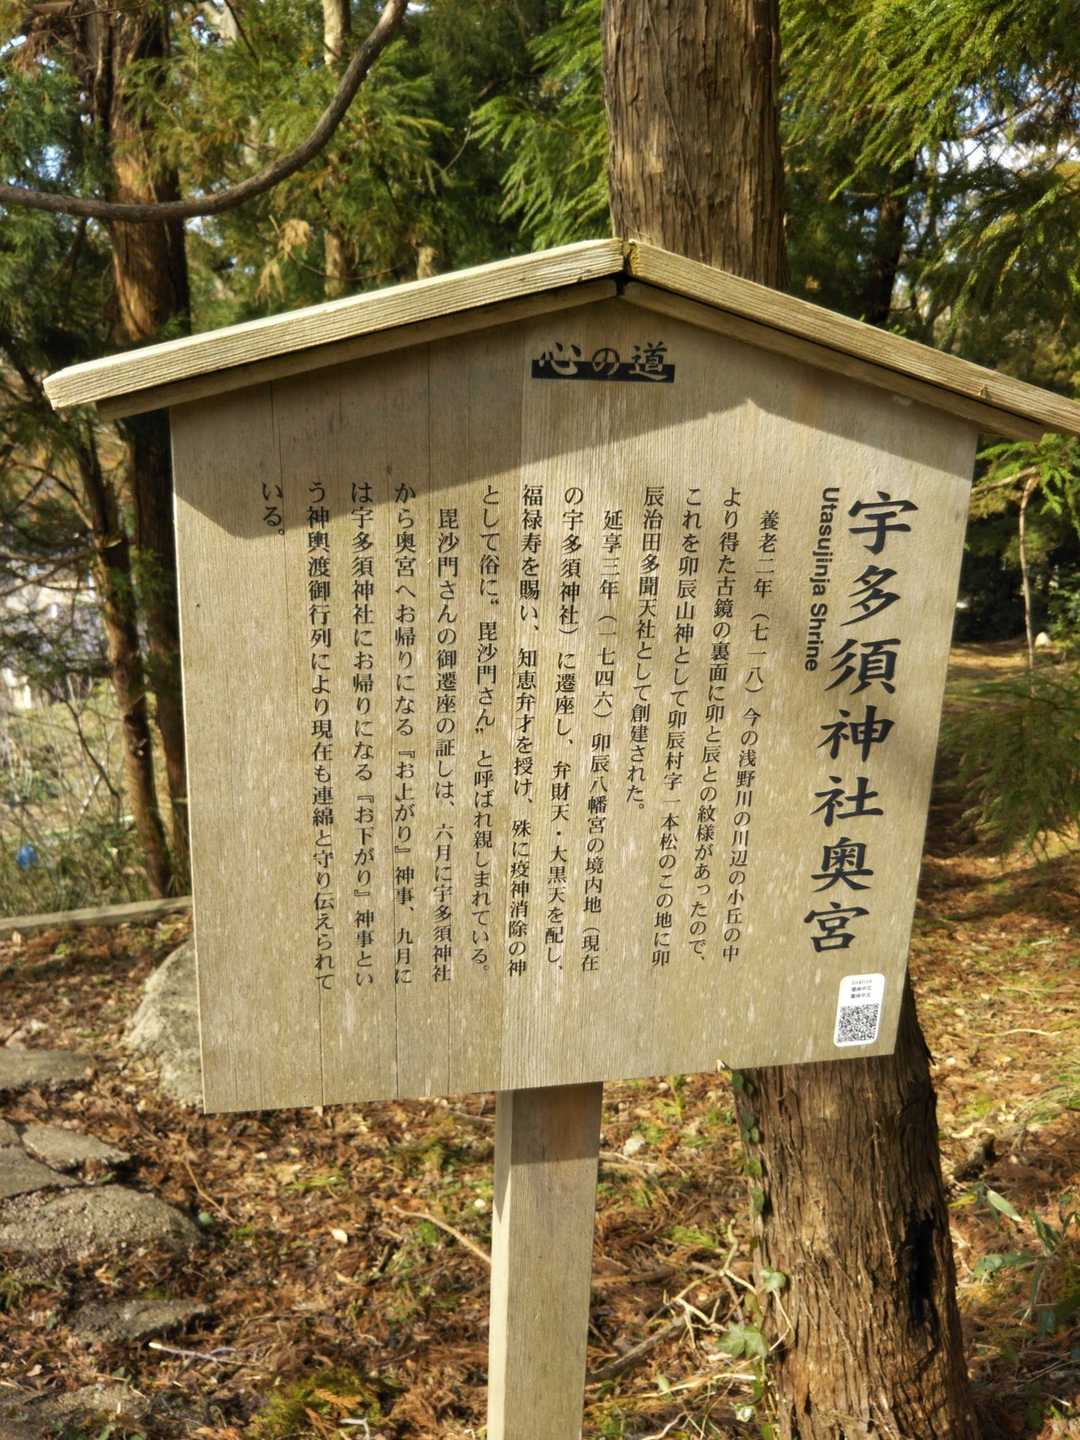 心の道
宇多須神社奥宮
Utasujinja Shrine
養老二年（七一八）今の浅野川の川辺の小丘の中
より得た古鏡の裏面に卯と辰との紋様があったので、
これを卯辰山神として卯辰村字一本松のこの地に卯
辰治田多聞天社として創建された。
延享三年（一七四六）卯辰八幡宮の境内地（現在
の宇多須神社）に遷座し、弁財天・大黒天を配し、
福禄寿を賜い、知恵弁才を授け、殊に疫神消除の神
として俗に〝毘沙門さん〟と呼ばれ親しまれている。
毘沙門さんの御遷座の証しは、六月に宇多須神社
から奥宮へお帰りになる『お上がり』神事、九月に
は宇多須神社にお帰りになる『お下がり』神事とい
う神輿渡御行列により現在も連綿と守り伝えられて
いる。